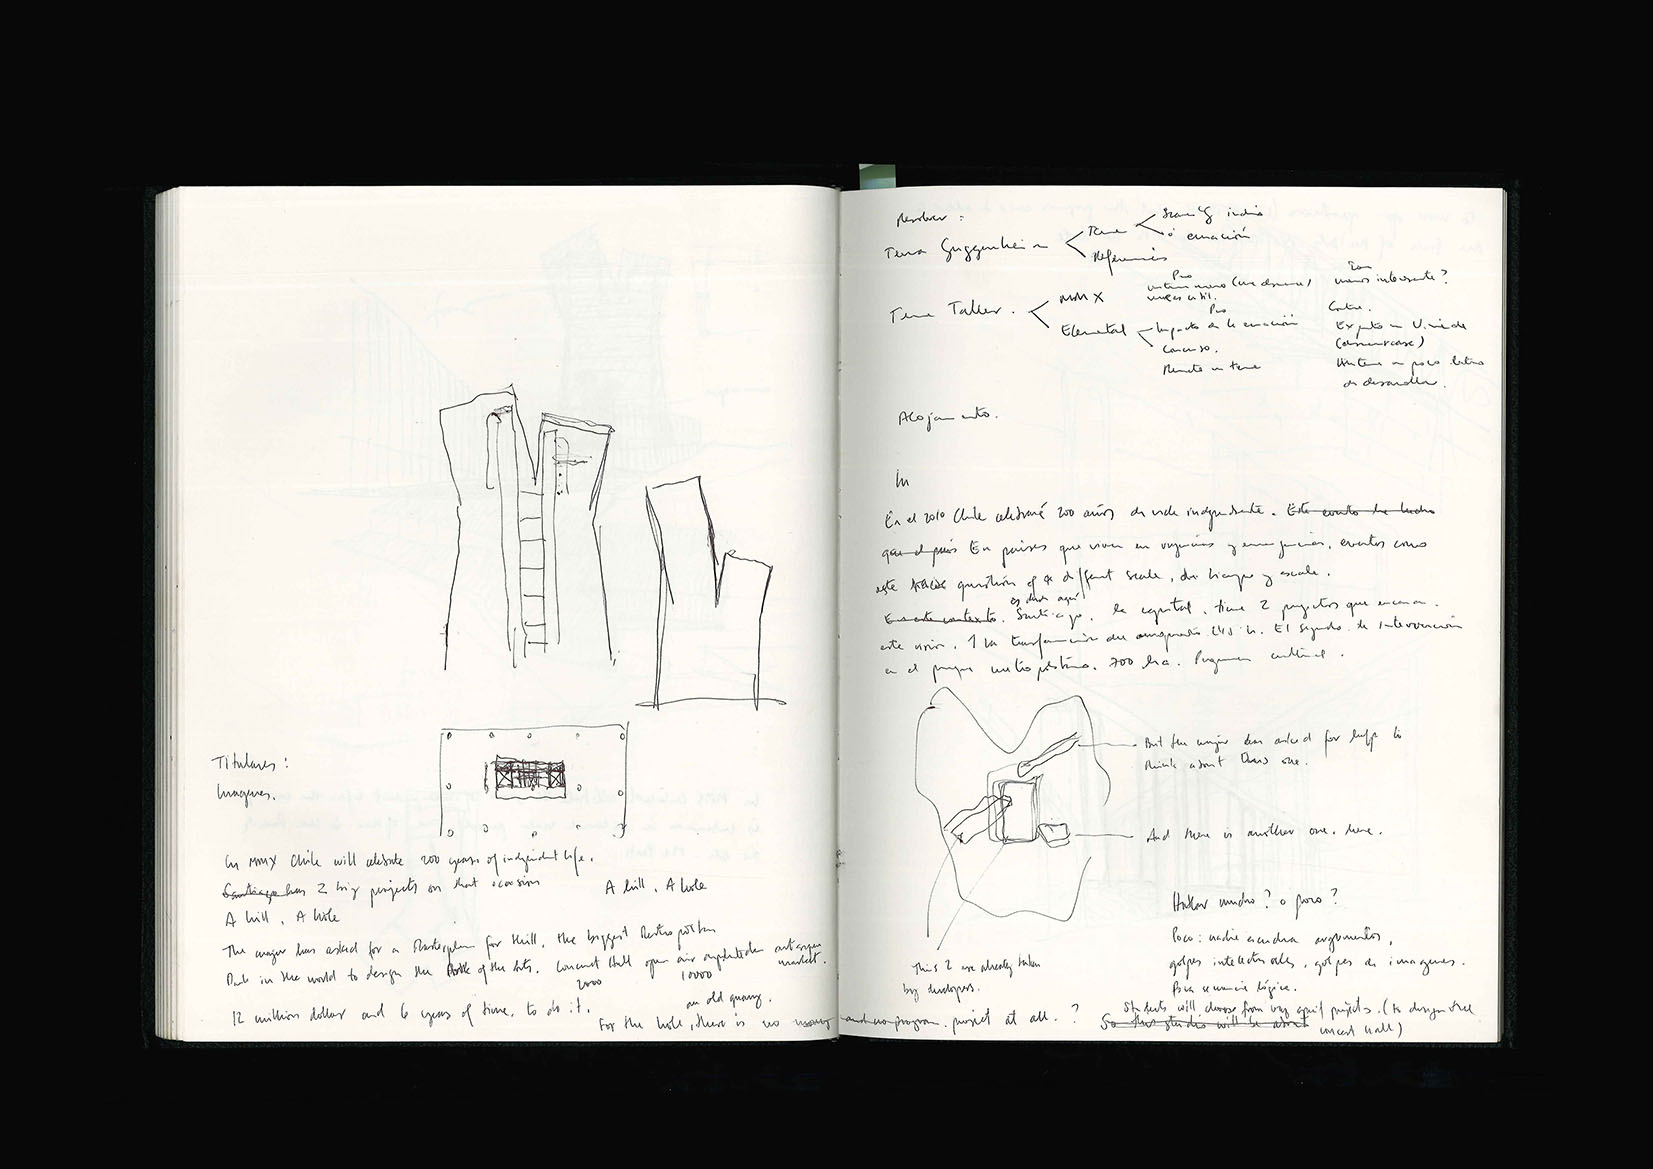 Titulares:
Imagenes.
In MMX Chile will celebrate 200 years of independent life.
Santiago has 2 big projects on that occasion
A hill, A hole
A hill, A hole
The mayor has asked for a Masterplan for this hill, the biggest Metropolitan
Park in the world to design the Park of the Arts. Concert Hall open air amphitheater art open
2000 10000 market.
12 million dollar and 6 years of time, to do it.
an old quarry.
For the hole, there is no money and no program. project at all. ?
Resolver:
Tema Guggenheim
Tema
o ecuación
Referencias
Tema Taller.
MMX
Pro
menos interesante?
Elemental
Pro
Impacto de la ecuación
Contra.
Concurso.
Experto en Vivienda
en poco latino
de desarrollar.
Alojamiento.
In
En el 2010 Chile celebrará 200 años de vida independiente. Este
que el país En países que viven en urgencias y emergencias, eventos como
este question of a different scale, de tiempo y escala.
En este contexto. Santiago, la capital, tiene 2 proyectos que encarnan
este visión. 1 La transformación del aeropuerto 245 h. El segundo la intervención
en el parque metropolitano. 700 ha. Programa cultural.
But the mayor has asked for help to
think about this one.
And there is another one, here.
This 2 are already taken
by developers.
Hablar mucho? o poco?
Poco: nadie escucha argumentos,
golpes intelectuales, golpes de imagenes.
Poca secuencia lógica.
Students will choose from very specif projects. (to design the
So this studio will be about concert hall)